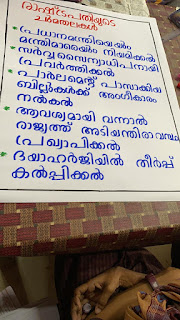 രാഷ്ട്രപതിയുടെ
ചുമതലകൾ
പ്രധാനമന്ത്രിയെയും
മന്ത്രിമാരെയും നിയമിക്കൽ
സർവ്വ സൈന്യാധിപനായി
പ്രവർത്തിക്കൽ
പാർലമെന്റ് പാസാക്കിയ
ബില്ലുകൾക്ക് അംഗീകാരം
നൽകൽ
ആവശ്യമായി വന്നാൽ
രാജ്യത്ത് അടിയന്തിരാവസ്ഥ
പ്രഖ്യാപിക്കൽ
ദയാഹർജിയിൽ തീർപ്പ്
കൽപ്പിക്കൽ